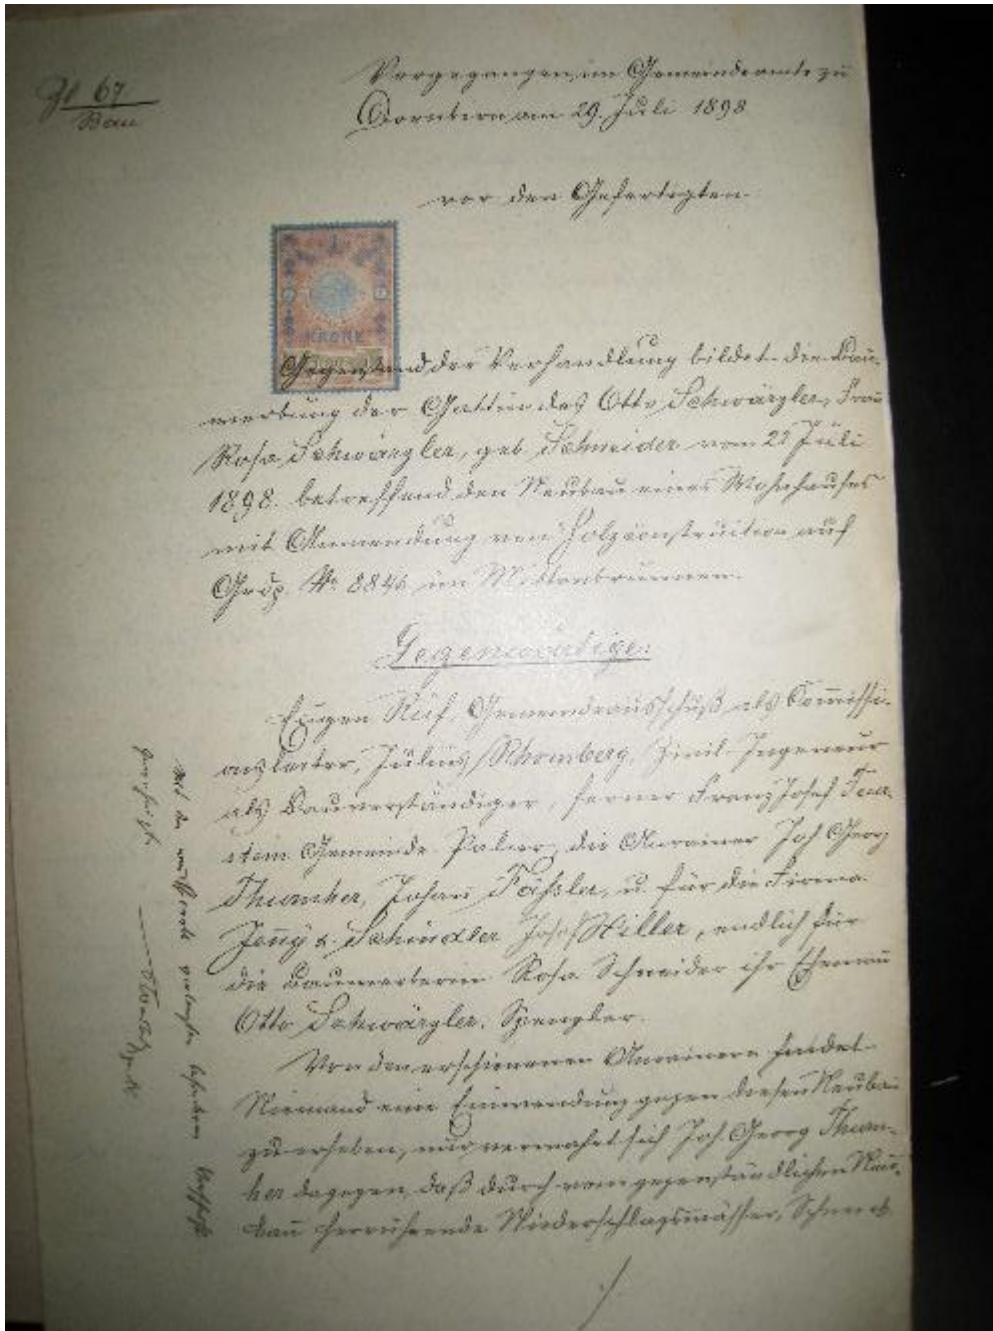 Zl 67
Bau
Vorgegangen im Gemeindeamte zu
Dornbirn am 29. Juli 1898
vor den Gefertigten
1
KRONE
Gegenstand der Verhandlung bildet die Bau-
werbung der Gattin des Otto Schwärzler, Frau
Rosa Schwärzler, geb Schneider vom 22 Juli
1898. betreffend den Neubau eines Wohnhauses
mit Anwendung von Holzconstruction auf
Grdp. No 8846 im Mittenbrunnen.
Gegenwärtige:
Eugen Rüf, Gemeindeausschuß als Commissi-
onsleiter, Julius Rhomberg, Zivil-Ingenieur
als Bauverständiger, ferner Franz Josef Feuer-
stein Gemeinde-Palier, die Anrainer Joh Georg
Thurnher, Johann Fässler, u. für die Firma
Jenny & Schindler Josef Hiller, endlich für
die Bauwerberin Rosa Schneider ihr Ehemann
Otto Schwärzler, Spengler.
Von den erschienenen Anrainern findet
Niemand eine Einwendung gegen diesen Neubau
zu erheben, nur verwahrt sich Joh. Georg Thurn-
her dagegen, daß durch vom gegenständlichen Neu-
bau herrührende Niederschlagswässer, Schnee